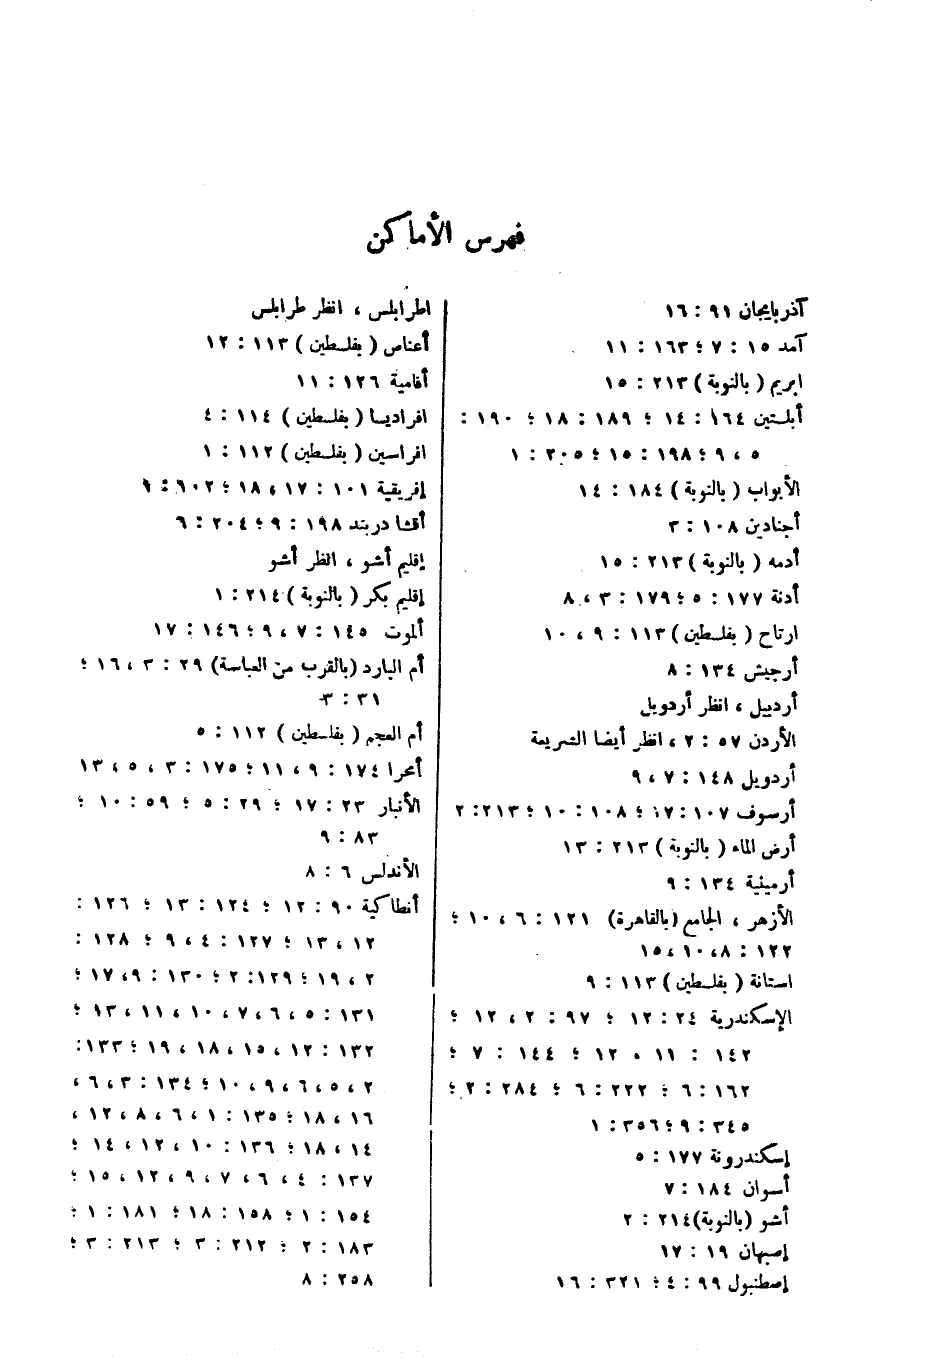 فهرس الأماكن
آذربايجان ٩١ : ١٦
آمد ١٥ : ٧ ؛ ١٦٣ : ١١
ابريم ( بالنوبة ) ٢١٣ : ١٥
أبلستين ١٦٤ : ١٤ ؛ ١٨٩ : ١٨ ؛ ١٩٠ :
٥ ، ٩ ؛ ١٩٨ : ١٥ ؛ ٢٠٥ : ١
الأبواب ( بالنوبة ) ١٨٤ : ١٤
أجنادين ١٠٨ : ٣
أدمه ( بالنوبة ) ٢١٣ : ١٥
أدنة ١٧٧ : ٥ ؛ ١٧٩ : ٣ ، ٨
ارتاح ( بفلسطين ) ١١٣ : ٩ ، ١٠
أرجيش ١٣٤ : ٨
أردبيل ، انظر أردويل
الأردن ٥٧ : ٢ ، انظر أيضا الشريعة
أردويل ١٤٨ : ٧ ، ٩
أرسوف ١٠٧ : ١٧ ؛ ١٠٨ : ١٠ ؛ ٢١٣ : ٢
أرض الماء ( بالنوبة ) ٢١٣ : ١٣
أرمينية ١٣٤ : ٩
الأزهر ، الجامع (بالقاهرة) ١٢١ : ٦ ، ١٠ ؛
١٢٢ : ٨ ، ١٠ ، ١٥
استانة ( بفلسطين ) ١١٣ : ٩
الإسكندرية ٢٤ : ١٢ ؛ ٩٧ : ٢ ، ١٢ ؛
١٤٢ : ١١ ، ١٢ ؛ ١٤٤ : ٧ ؛
١٦٢ : ٦ ؛ ٢٢٢ : ٦ ؛ ٢٨٤ : ٢ ؛
٣٤٥ : ٩ ؛ ٣٥٦ : ١
إسكندرونة ١٧٧ : ٥
أسوان ١٨٤ : ٧
أشو (بالنوبة) ٢١٤ : ٢
إصبهان ١٩ : ١٧
إصطنبول ٩٩ : ٤ ؛ ٣٢١ : ١٦
اطرابلس ، انظر طرابلس
أعناص ( بفلسطين ) ١١٣ : ١٢
أفامية ١٢٦ : ١١
افراديسا ( بفلسطين ) ١١٤ : ٤
افراسين ( بفلسطين ) ١١٢ : ١
إفريقية ١٠١ : ١٧ ، ١٨ ؛ ٦٠٢ : ٩
أقشا دربند ١٩٨ : ٩ ؛ ٢٠٤ : ٦
إقليم أشو ، انظر أشو
إقليم بكر ( بالنوبة ) ٢١٤ : ١
ألموت ١٤٥ : ٧ ، ٩ ؛ ١٤٦ : ١٧
أم البارد (بالقرب من العباسة) ٢٩ : ٣ ، ١٦ ؛
٣١ : ٣
أم العجم ( بفلسطين ) ١١٢ : ٥
أمحرا ١٧٤ : ٩ ، ١١ ؛ ١٧٥ : ٣ ، ٥ ، ١٣
الأنبار ٢٣ : ١٧ ؛ ٢٩ : ٥ ؛ ٥٩ : ١٠ ؛
٨٣ : ٩
الأندلس ٦ : ٨
أنطاكية ٩٠ : ١٢ ؛ ١٢٤ : ١٣ ؛ ١٢٦ :
١٢ ، ١٣ ؛ ١٢٧ : ٤ ، ٩ ؛ ١٢٨ :
٢ ، ١٩ ؛ ١٢٩ : ٢ ؛ ١٣٠ : ٩ ، ١٧ ؛
١٣١ : ٥ ، ٦ ، ٧ ، ١٠ ، ١١ ، ١٣ ؛
١٣٢ : ١٢ ، ١٥ ، ١٨ ، ١٩ ؛ ١٣٣ :
٢ ، ٥ ، ٦ ، ٩ ، ١٠ ؛ ١٣٤ : ٣ ، ٦ ،
١٦ ، ١٨ ؛ ١٣٥ : ١ ، ٦ ، ٨ ، ١٢ ،
١٤ ، ١٨ ؛ ١٣٦ : ١٠ ، ١٢ ، ١٤ ؛
١٣٧ : ٤ ، ٦ ، ٧ ، ٩ ، ١٢ ، ١٥ ؛
١٥٤ : ١ ؛ ١٥٨ : ١٨ ؛ ١٨١ : ١ ؛
١٨٣ : ٢ ؛ ٢١٢ : ٣ ؛ ٢١٣ : ٣ ؛
٢٥٨ : ٨